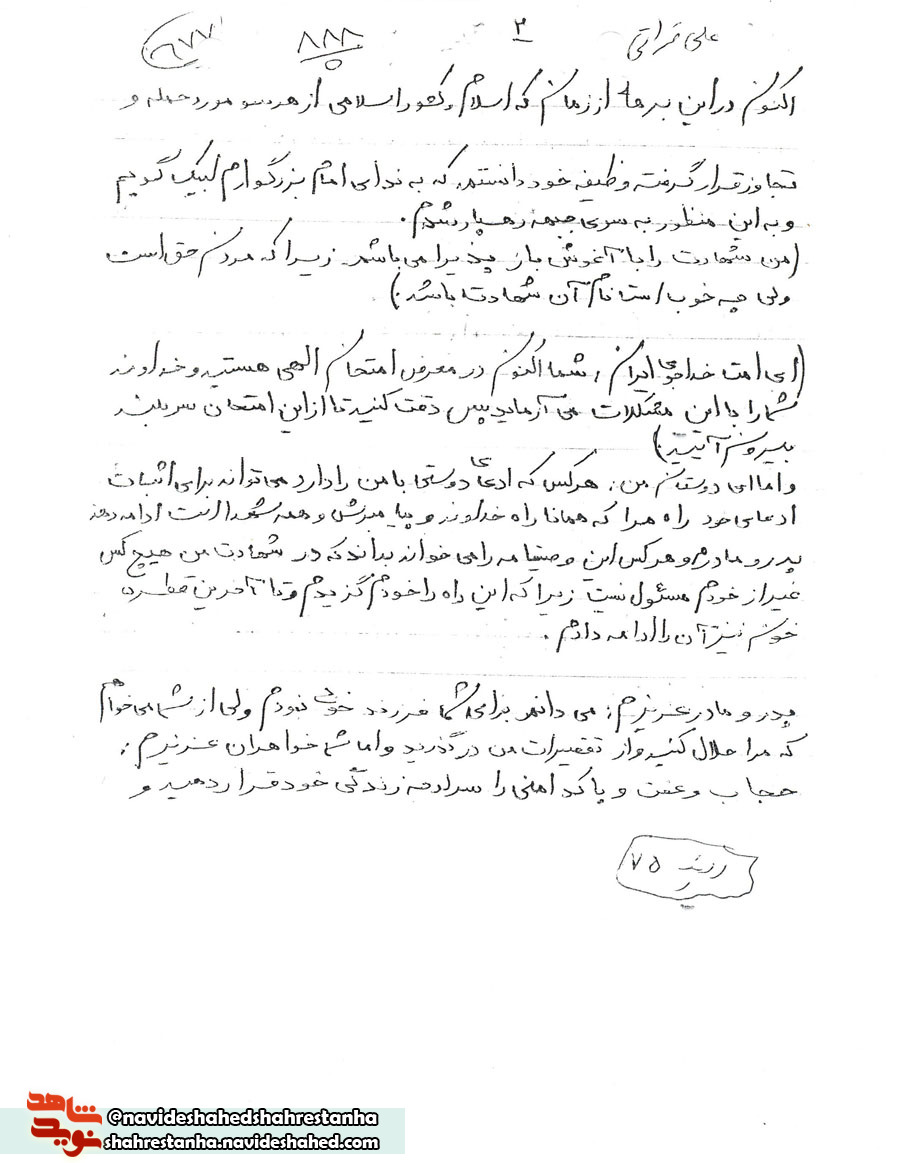 علی قرائتی ۲ ۸۸۸ ۶۷۷
اکنون در این برهه از زمان که اسلام و کشور اسلامی از هر سو مورد حمله و
تجاوز قرار گرفته وظیفه خود دانستم که به ندای امام بزرگوارم لبیک گویم
و به این منظور به سوی جبهه رهسپار شدم.
(من شهادت را با آغوش باز پذیرا می باشم زیرا که مردن حق است
ولی چه خوب است نام آن شهادت باشد.)
(ای امت خداجوی ایران، شما اکنون در معرض امتحان الهی هستید و خداوند
شما را با این مشکلات می آزماید پس دقت کنید تا از این امتحان سربلند
بیرون آئید.)
و اما ای دوستان من، هر کس که ادعای دوستی با من را دارد می تواند برای اثبات
ادعای خود راه مرا که همانا راه خداوند و پیامبرش و همه شهدا است ادامه دهد
پدر و مادرم و هر کس این وصیتنامه را می خواند بداند که در شهادت من هیچ کس
غیر از خودم مسئول نیست زیرا که این راه را خودم گزیدم و تا آخرین قطره
خونم نیز آن را ادامه دادم.
پدر و مادر عزیزم: می دانم برای شما فرزند خوبی نبودم ولی از شما می خواهم
که مرا حلال کنید و از تقصیرات من درگذرید و اما شما خواهران عزیزم:
حجاب و عفت و پاکدامنی را سرلوحه زندگی خود قرار دهید و
۷۵
شاهد
نوید
@navideshahedshahrestanha
shahrestanha.navideshahed.com